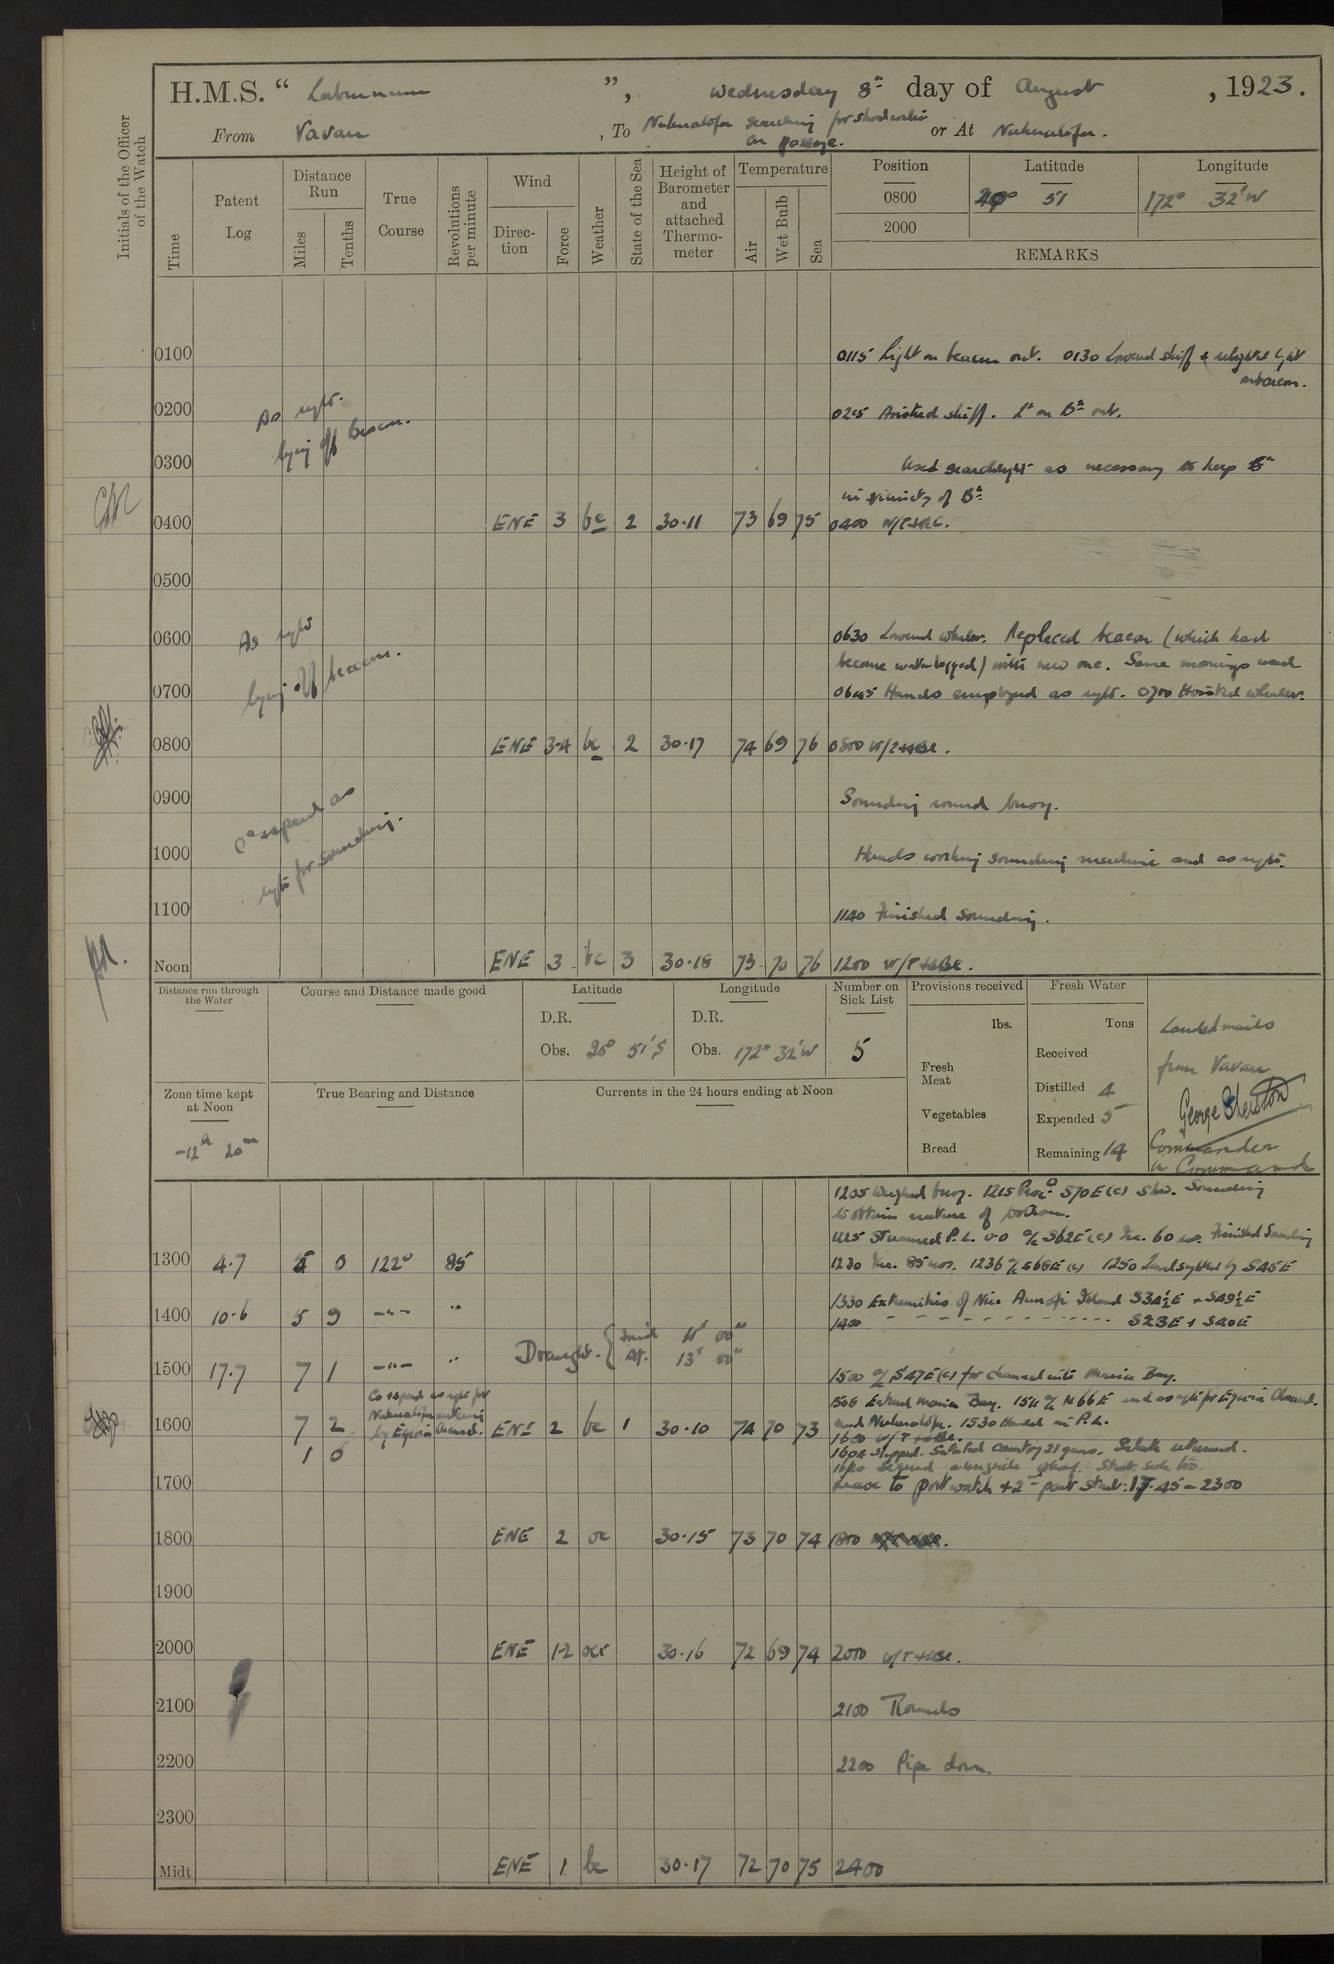 H.M.S. “ Laburnum ”, Wednesday 8th day of August , 1923.
From Vavau , To Nukualofa searching for shoal water on passage. or At Nukualofa.
Initials of the Officer of the Watch
Time
Patent Log
Distance Run
Miles
Tenths
True Course
Revolutions per minute
Wind
Direction
Force
Weather
State of the Sea
Height of Barometer and attached Thermometer
Temperature
Air
Wet Bulb
Sea
Position Latitude Longitude
0800 20° 51 172° 32'W
2000
REMARKS
0100 0115 Light on beacon out. 0130 Lowered skiff & relighted light
on beacon.
0200 As reqte. 0245 Hoisted skiff. Lt on Bn out.
lying off beacon.
0300 Used searchlight as necessary to keep
in vicinity of Bn
0400 ENE 3 bc 2 30.11 73 69 75 0400
0500
0600 As reqte 0630 Lowered whaler. Replaced beacon (which had
lying off beacon. become waterlogged) with new one. Same moorings used
0700 0645 Hands employed as reqte. 0700 Hoisted whaler.
0800 ENE 3-4 bc 2 30.17 74 69 76 0800
0900 Co & speed as Sounding round buoy.
1000 reqte for sounding. Hands working sounding machine and as reqte.
1100 1140 Finished Sounding.
Noon ENE 3 bc 3 30.18 73 70 76 1200
Distance run through the Water
Course and Distance made good
Latitude
D.R.
Obs. 20° 51'S
Longitude
D.R.
Obs. 172° 32'W
Number on Sick List
5
Provisions received
lbs.
Fresh Meat
Vegetables
Bread
Fresh Water
Tons
Received
Distilled 4
Expended 5
Remaining 14
Landed mails
from Vavau
George
Commander
in Command
Zone time kept at Noon
-12h 20m
True Bearing and Distance
Currents in the 24 hours ending at Noon
1205 Weighed buoy. 1215 Proc. S70E(c) Sounding
to obtain nature of bottom.
1225 Streamed P.L. 0.0 a/c S62E(c) Inc. 60 revs. Finished Sounding
1300 4.7 5 0 122° 85 1230 Inc. 85 revs. 1236 a/c S66E(c) 1250 Land sighted by S45E
1330 Extremities of Island S34½E & S49½E
1400 10.6 5 9 -"- " 1400 S23E & S40E
Draught. { Ford 11' 00"
Aft. 13' 00"
1500 17.7 7 1 -"- " 1500 a/c S47E(c) for channel into Maria Bay.
Co & speed as reqte for 1506 Entered Maria Bay. 1511 a/c N66E and as reqte for Egeria Channel.
Nukualofa entering and Nukualofa. 1530 Handed in P.L.
1600 7 2 by Egeria Channel. ENE 2 bc 1 30.10 74 70 73 1600
1 0 1604 Stopped. Saluted country 21 guns. Salute returned.
Secured alongside wharf. Starb. side to.
1700 Leave to port watch & 2nd part Starb: 17.45 – 2300
1800 ENE 2 oc 30.15 73 70 74 1800
1900
2000 ENE 1-2 ocr 30.16 72 69 74 2000
2100 2100 Rounds
2200 2200 Pipe down.
2300
Midt ENE 1 bc 30.17 72 70 75 2400